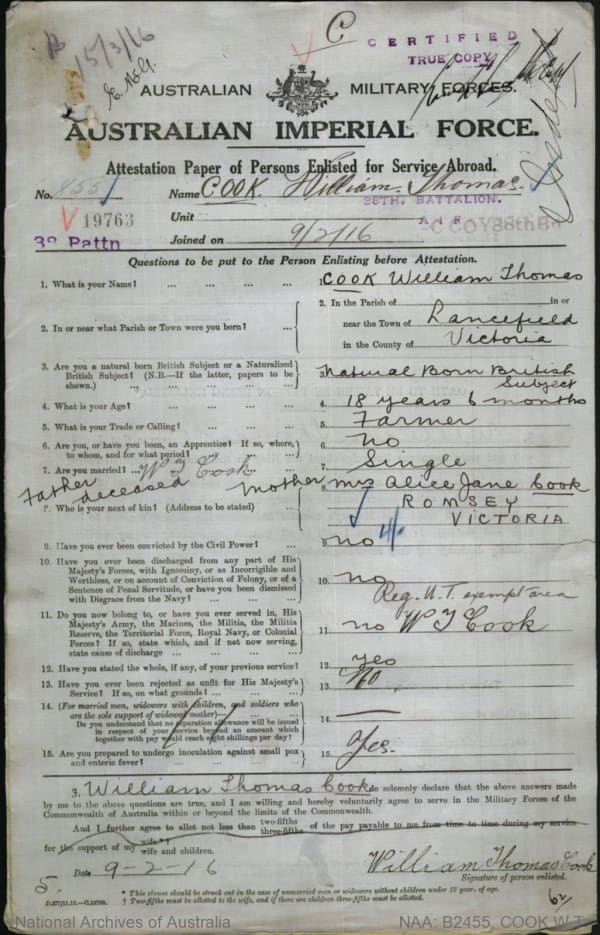 C
CERTIFIED
TRUE COPY
15/3/16
AUSTRALIAN MILITARY FORCES.
AUSTRALIAN IMPERIAL FORCE.
Attestation Paper of Persons Enlisted for Service Abroad.
No. 855 Name COOK William Thomas.
38TH. BATTALION.
19763 Unit A I F C COY 38th Bn
38 Battn Joined on 9/2/16
Questions to be put to the Person Enlisting before Attestation.
1. What is your Name? ... ... ... ... 1. COOK William Thomas
2. In or near what Parish or Town were you born? ... 2. In the Parish of in or
near the Town of Lancefield
in the County of Victoria
3. Are you a natural born British Subject or a Naturalized
British Subject? (N.B.—If the latter, papers to be
shown.) ... ... ... ... ... 3. Natural Born British
Subject
4. What is your Age? ... ... ... ... 4. 18 years 6 months
5. What is your Trade or Calling? ... ... ... 5. Farmer
6. Are you, or have you been, an Apprentice? If so, where,
to whom, and for what period? ... ... ... 6. no
7. Are you married? ... ... 7. Single
W T Cook
Father deceased
8. Who is your next of kin? (Address to be stated) ... 8. Mother Mrs Alice Jane Cook
ROMSEY
VICTORIA
9. Have you ever been convicted by the Civil Power? ... 9. no
10. Have you ever been discharged from any part of His
Majesty's Forces, with Ignominy, or as Incorrigible and
Worthless, or on account of Conviction of Felony, or of a
Sentence of Penal Servitude, or have you been dismissed
with Disgrace from the Navy? ... ... ... 10. no
Reg. U.T. exempt area
11. Do you now belong to, or have you ever served in, His
Majesty's Army, the Marines, the Militia, the Militia
Reserve, the Territorial Force, Royal Navy, or Colonial
Forces? If so, state which, and if not now serving,
state cause of discharge ... ... ... 11. no W T Cook
12. Have you stated the whole, if any, of your previous service? 12. yes
13. Have you ever been rejected as unfit for His Majesty's
Service? If so, on what grounds? ... ... ... 13. No.
14. (For married men, widowers with children, and soldiers who
are the sole support of widowed mother)—
Do you understand that no separation allowance will be issued
in respect of your service beyond an amount which
together with pay would reach eight shillings per day? ... 14. —
15. Are you prepared to undergo inoculation against small pox
and enteric fever? ... ... ... ... 15. Yes.
I, William Thomas Cook do solemnly declare that the above answers made
by me to the above questions are true, and I am willing and hereby voluntarily agree to serve in the Military Forces of the
Commonwealth of Australia within or beyond the limits of the Commonwealth.
And I further agree to allot not less than two-fifths three-fifths of the pay payable to me from time to time during my service
for the support of my wife* wife and children.
Date 9-2-16 William Thomas Cook
Signature of person enlisted.
* This clause should be struck out in the case of unmarried men or widowers without children under 18 years of age.
† Two-fifths must be allotted to the wife, and if there are children three-fifths must be allotted.
National Archives of Australia NAA: B2455, COOK W T